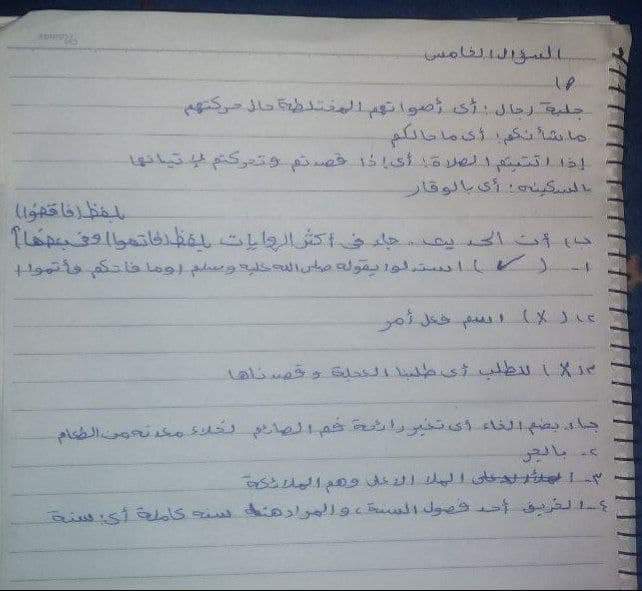 السؤال الخامس
P)
جلبة رجال: أى أصواتهم المختلطة حال حركتهم
ما شأنكم: أى ما حالكم
إذا اتيتم الصلاة: أى إذا قصدتم وتحركتم لإتيانها
بالسكينة: أى بالوقار
بلفظ (فاقضوا)
ب) أن الحديث جاء فى أكثر الروايات بلفظ (فاتموا) وفى بعضها
١- (✓) استدلوا بقوله صلى الله عليه وسلم (وما فاتكم فأتموا)
٢- (X) اسم فعل أمر
٣- (X) للطلب أى طلبنا العجلة وقصدناها
جـ) بضم الخاء أى تغير رائحة فم الصائم لخلاء معدته من الطعام
٢- بالجر
٣- الملأ الاعلى وهم الملائكة
٤- الخريف أحد فصول السنة، والمراد هنا سنه كاملة أى: سنة